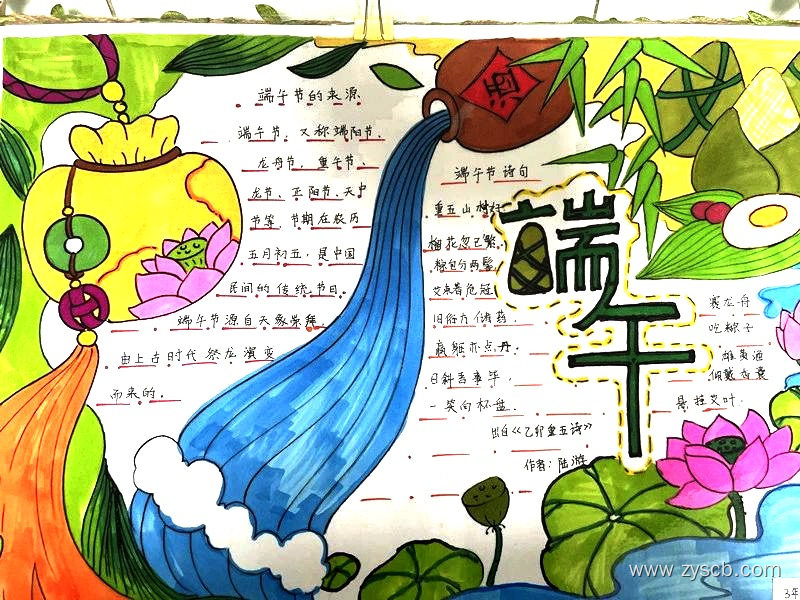 酒
端午节的来源
端午节，又称端阳节、
龙舟节、重午节、
龙节、正阳节、天中
节等，节期在农历
五月初五，是中国
民间的传统节日。
端午节源自天象崇拜，
由上古时代祭龙演变
而来的。
端午节诗句
重五山村
榴花忽已繁。
粽包分两髻，
艾束著危冠
旧俗方储药，
羸躯亦点丹。
日斜吾事毕，
一笑向杯盘.
出自《乙卯重五诗》
作者：陆游
端午
赛龙舟
吃粽子
雄黄酒
佩戴香囊
悬挂艾叶.
www.zyscb.com
3年